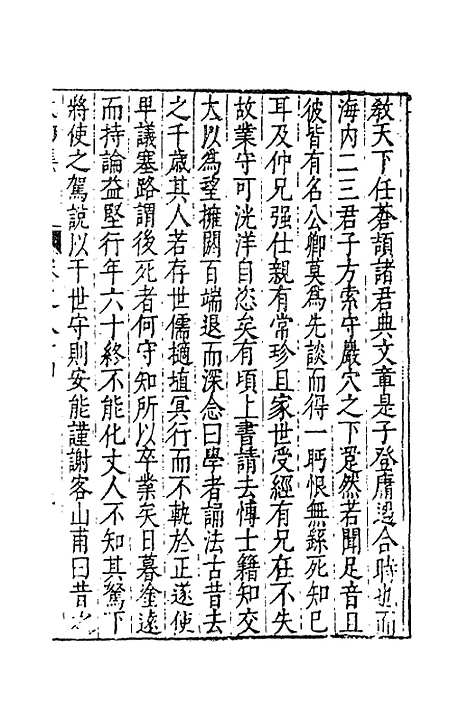 教天下任蒼頡諸君典文章是子登庸遇合時也而
海内二三君子方索守巖穴之下跫然若聞足音且
彼皆有名公卿莫為先談而得一眄恨無繇死知已
耳及仲兄强仕親有常珍且家世受經有兄在不失
故業守可洸洋自恣矣有頃上書請去博士籍知交
大以為望擁閼百端退而深念曰學者誦法古昔去
之千歳其人若存世儒擿埴冥行而不軌於正遂使
卑議塞路謂後死者何守知所以卒業矣日暮途遠
而持論益堅行年六十終不能化丈人不知其駑下
將使之駕說以干世守則安能謹謝客山甫曰昔之